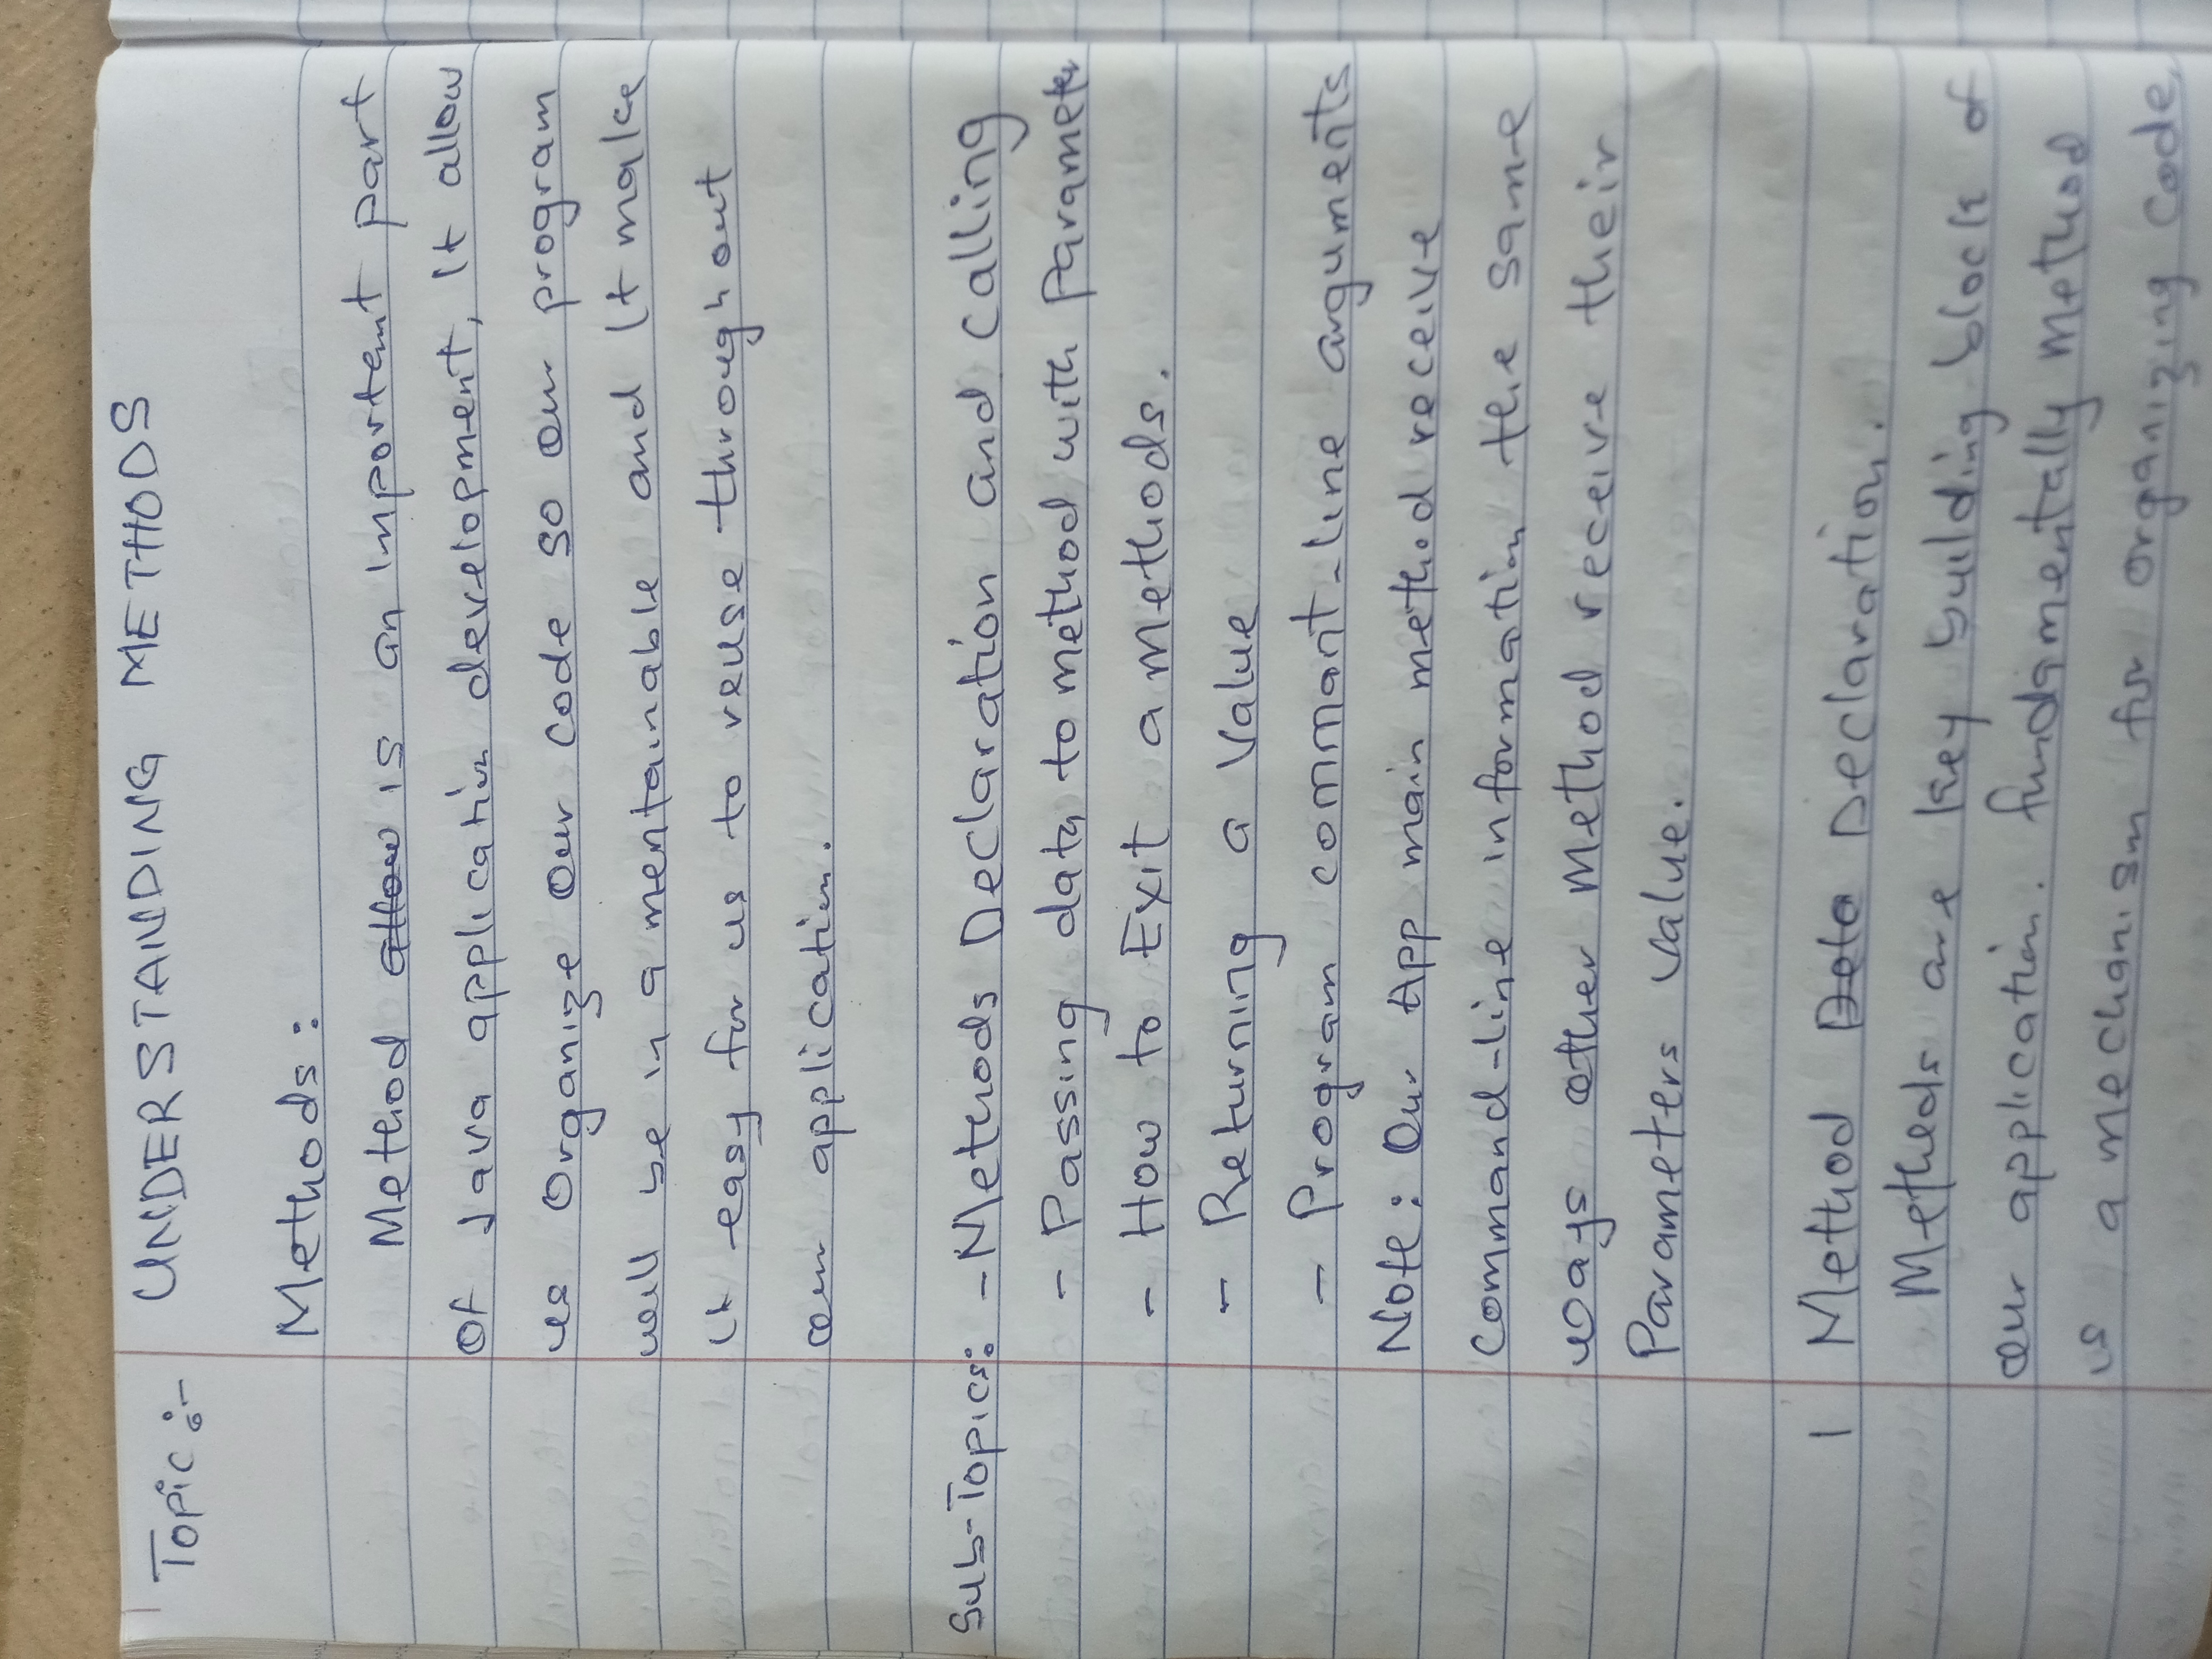 Topic:- UNDERSTANDING METHODS
Methods:
Method is an importent part
of Java application development, It allow
us organize our code so our program
will be in a mentainable and It make
it easy for us to reuse through out
our application.
Sub-Topics: - Methods Declaration and Calling
- Passing data to method with Parameter
- How to Exit a methods.
- Returning a Value
- Program commant-line arguments
Note: Our App main method receive
Command-line information the same
ways other method receive their
Parameters value.
1 Method Declaration.
Methods are key building block of
our application. fundamentally method
is a mechanism for organizing code